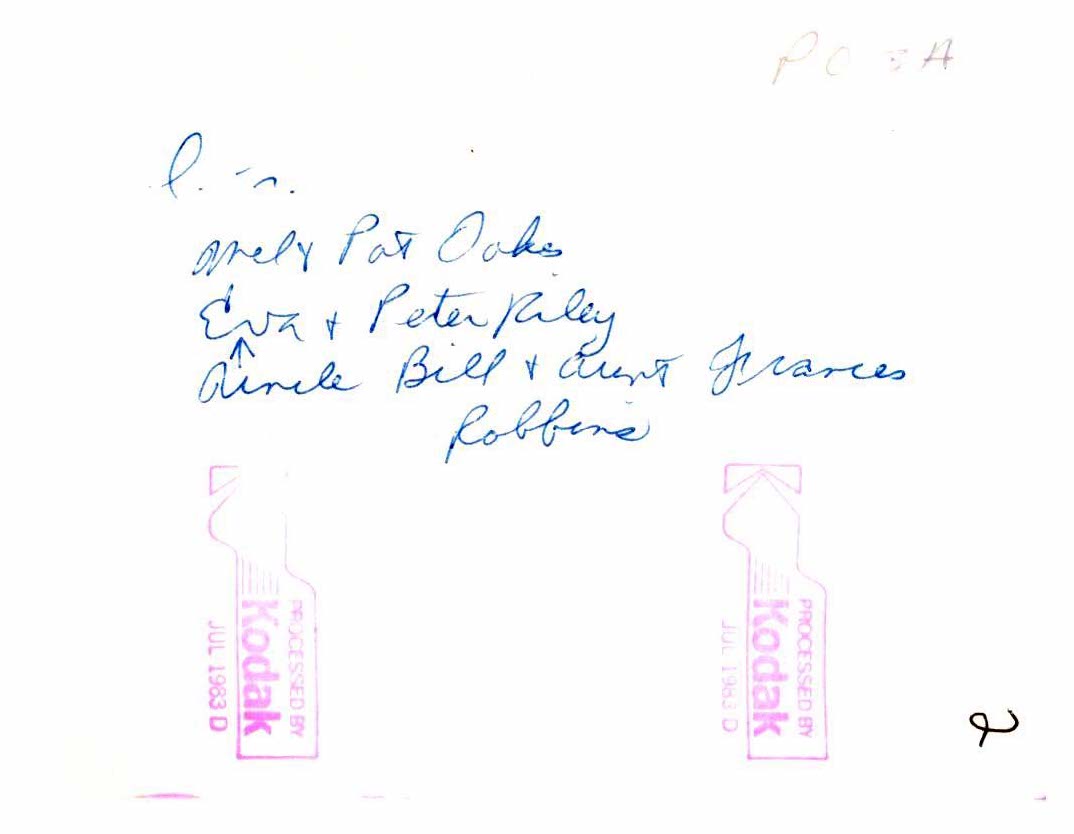 l. - r.
Mel & Pat Oakes
Eva + Peter Riley
Uncle Bill + Aunt Frances
Robbins
PROCESSED BY
Kodak
JUL 1983 D
PROCESSED BY
Kodak
JUL 1983 D
2